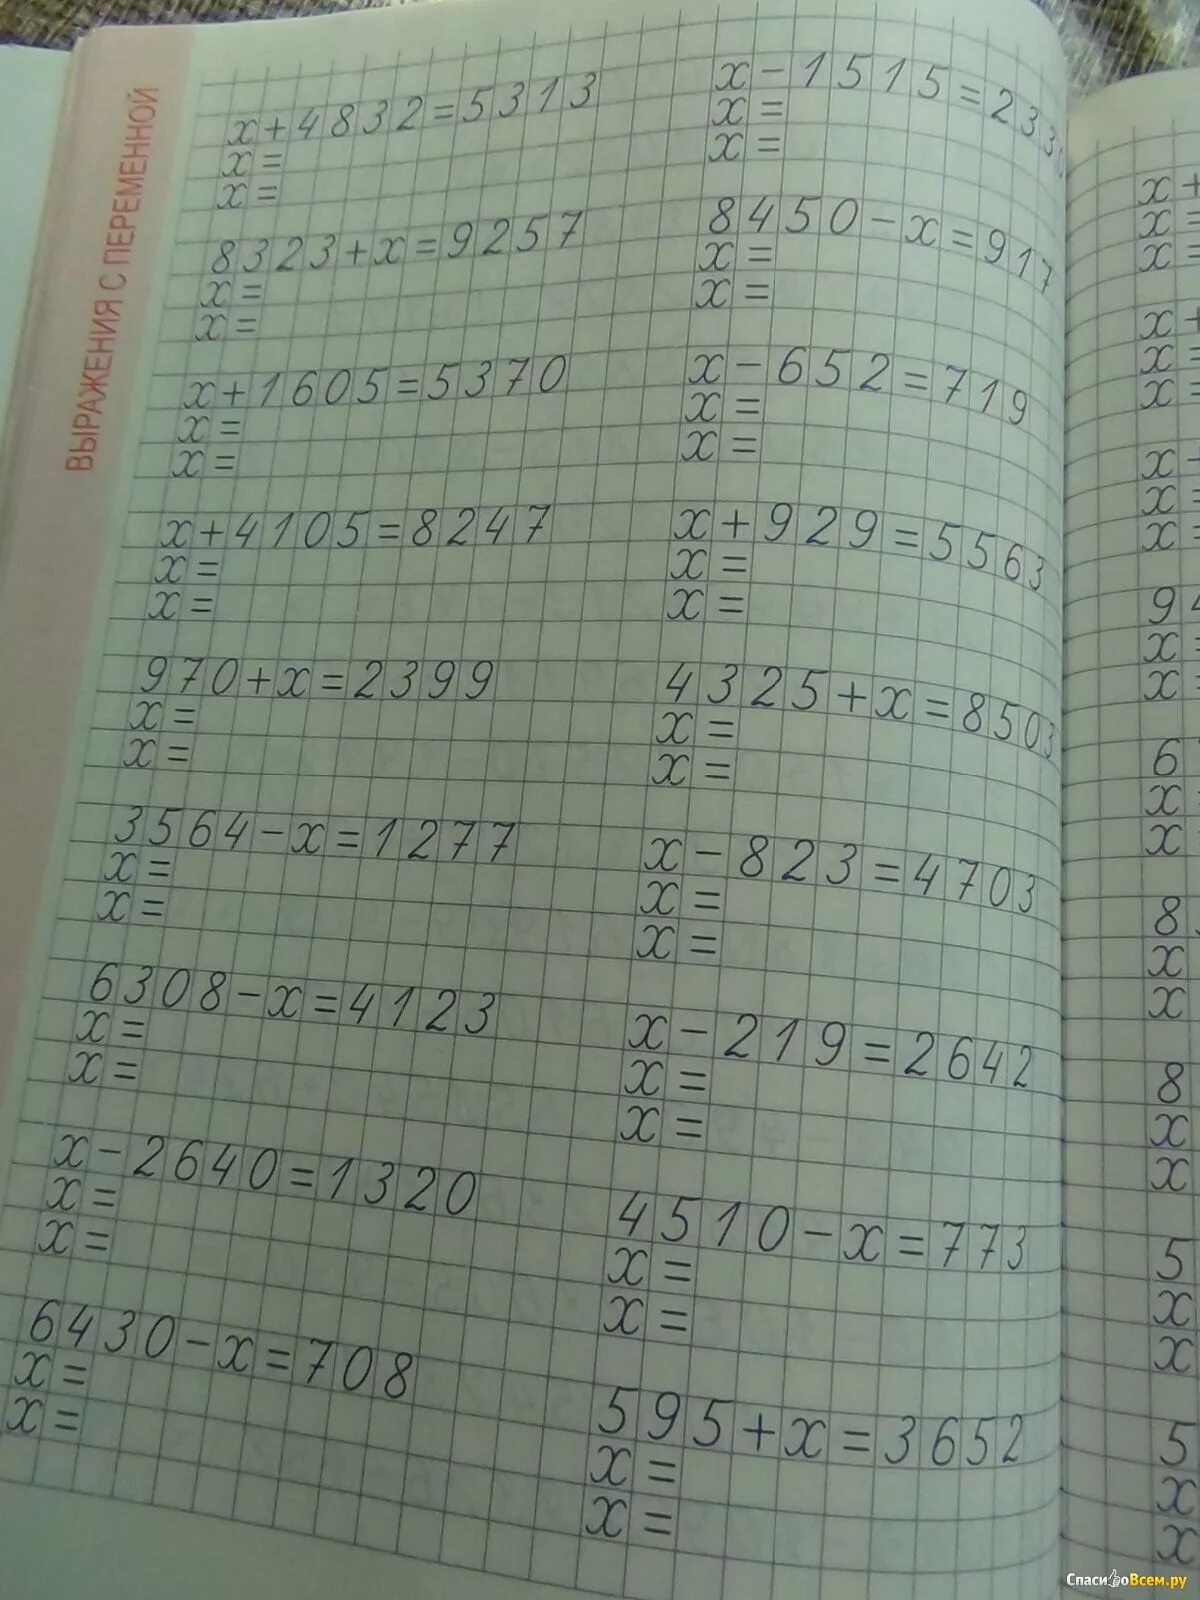 ВЫРАЖЕНИЯ С ПЕРЕМЕННОЙ
x+4832=5313
x=
x=
8323+x=9257
x=
x=
x+1605=5370
x=
x=
x+4105=8247
x=
x=
970+x=2399
x=
x=
3564-x=1277
x=
x=
6308-x=4123
x=
x=
x-2640=1320
x=
x=
6430-x=708
x=
x=
x-1515=233
x=
x=
8450-x=917
x=
x=
x-652=719
x=
x=
x+929=5563
x=
x=
4325+x=8503
x=
x=
x-823=4703
x=
x=
x-219=2642
x=
x=
4510-x=773
x=
x=
595+x=3652
x=
x=
x+
x=
x=
x+
x=
x=
x+
x=
x=
94
x=
x=
6
x
x
8
x
x
8
x
x
5
x
x
5
x
x
СпасибоВсем.ру